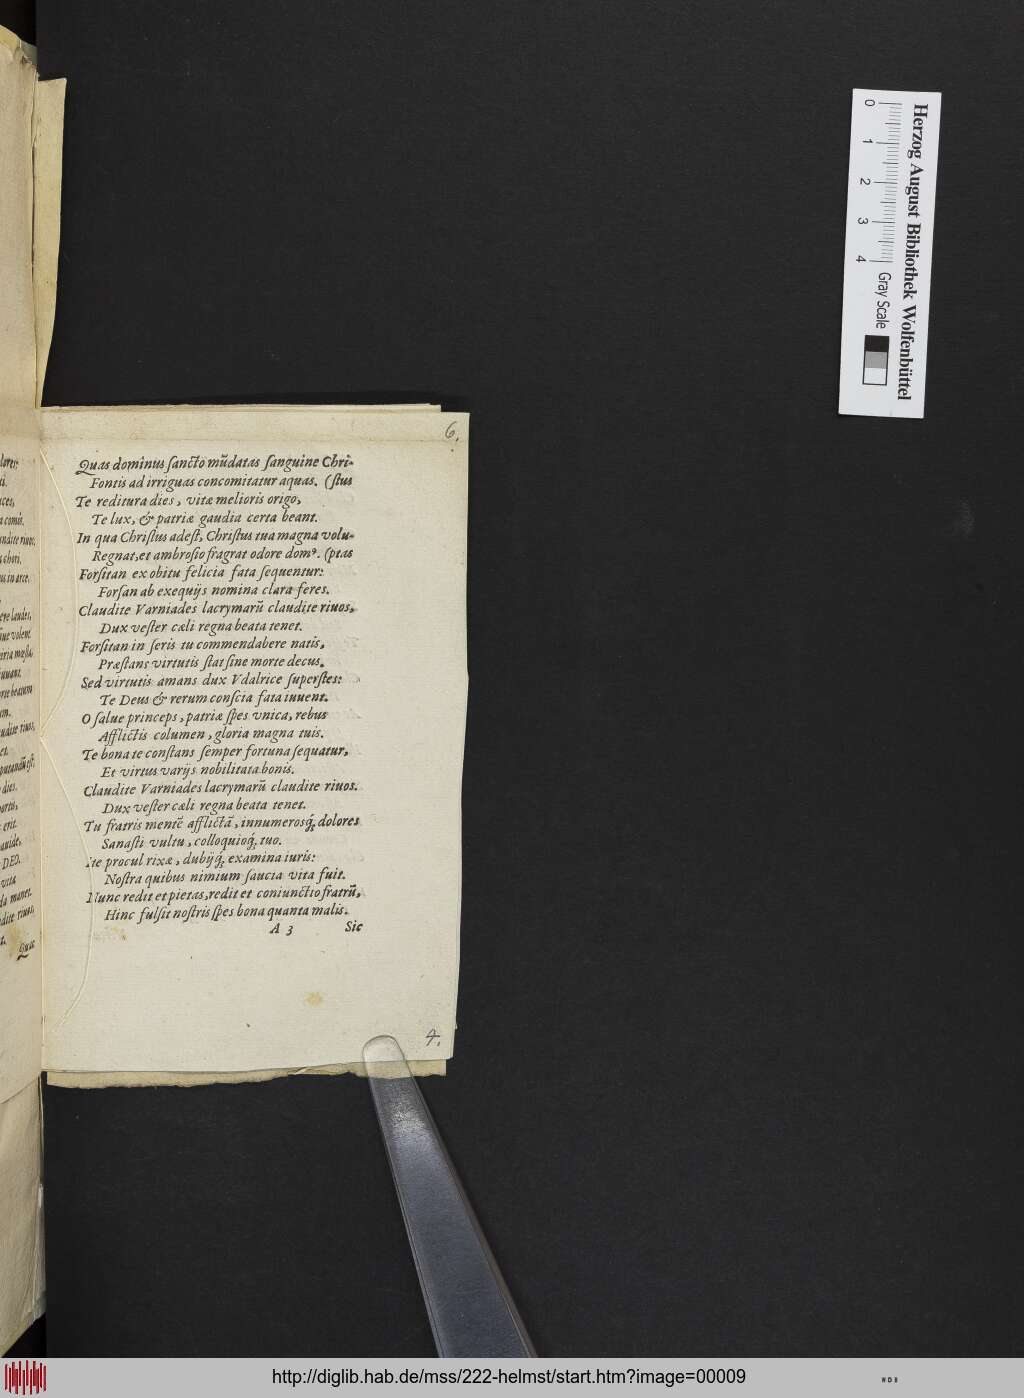 6.
Quas dominus ſancto mũdatas ſanguine Chri-
Fontis ad irriguas concomitatur aquas. (ſtus
Te reditura dies, vitæ melioris origo,
Te lux, & patriæ gaudia certa beant.
In qua Chriſtus adeſt, Chriſtus tua magna volu-
Regnat, et ambroſio fragrat odore domꝰ. (ptas
Forſitan ex obitu felicia fata ſequentur:
Forſan ab exequijs nomina clara feres.
Claudite Varniades lacrymarũ claudite riuos,
Dux veſter cæli regna beata tenet.
Forſitan in ſeris tu commendabere natis,
Præſtans virtutis ſtat ſine morte decus.
Sed virtutis amans dux Vdalrice ſuperſtes:
Te Deus & rerum conſcia fata iuuent.
O ſalue princeps, patriæ ſpes vnica, rebus
Afflictis columen, gloria magna tuis.
Te bona te conſtans ſemper fortuna ſequatur,
Et virtus varijs nobilitata bonis.
Claudite Varniades lacrymarũ claudite riuos.
Dux veſter cæli regna beata tenet.
Tu fratris mentẽ afflictã, innumerosq́; dolores
Sanaſti vultu, colloquioq́; tuo.
Ite procul rixæ, dubijq́; examina iuris:
Noſtra quibus nimium ſaucia vita fuit.
Nunc redit et pietas, redit et coniunctio fratrũ,
Hinc fulſit noſtris ſpes bona quanta malis.
A 3 Sic
4.
dolores:
comis.
chori.
laudes,
volent
beatum
riuos,
dies.
erit.
DEO.
vita
manet.
riuos,
Quas
Herzog August Bibliothek Wolfenbüttel
0 1 2 3 4
Gray Scale
http://diglib.hab.de/mss/222-helmst/start.htm?image=00009